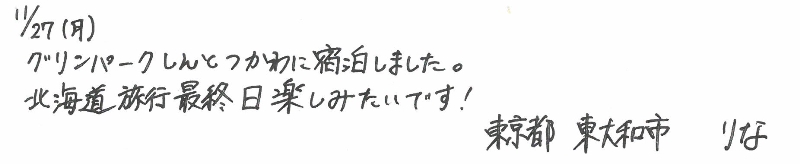 11/27(月)
グリンパークしんとつかわに宿泊しました。
北海道旅行最終日楽しみたいです!
東京都 東大和市 りな